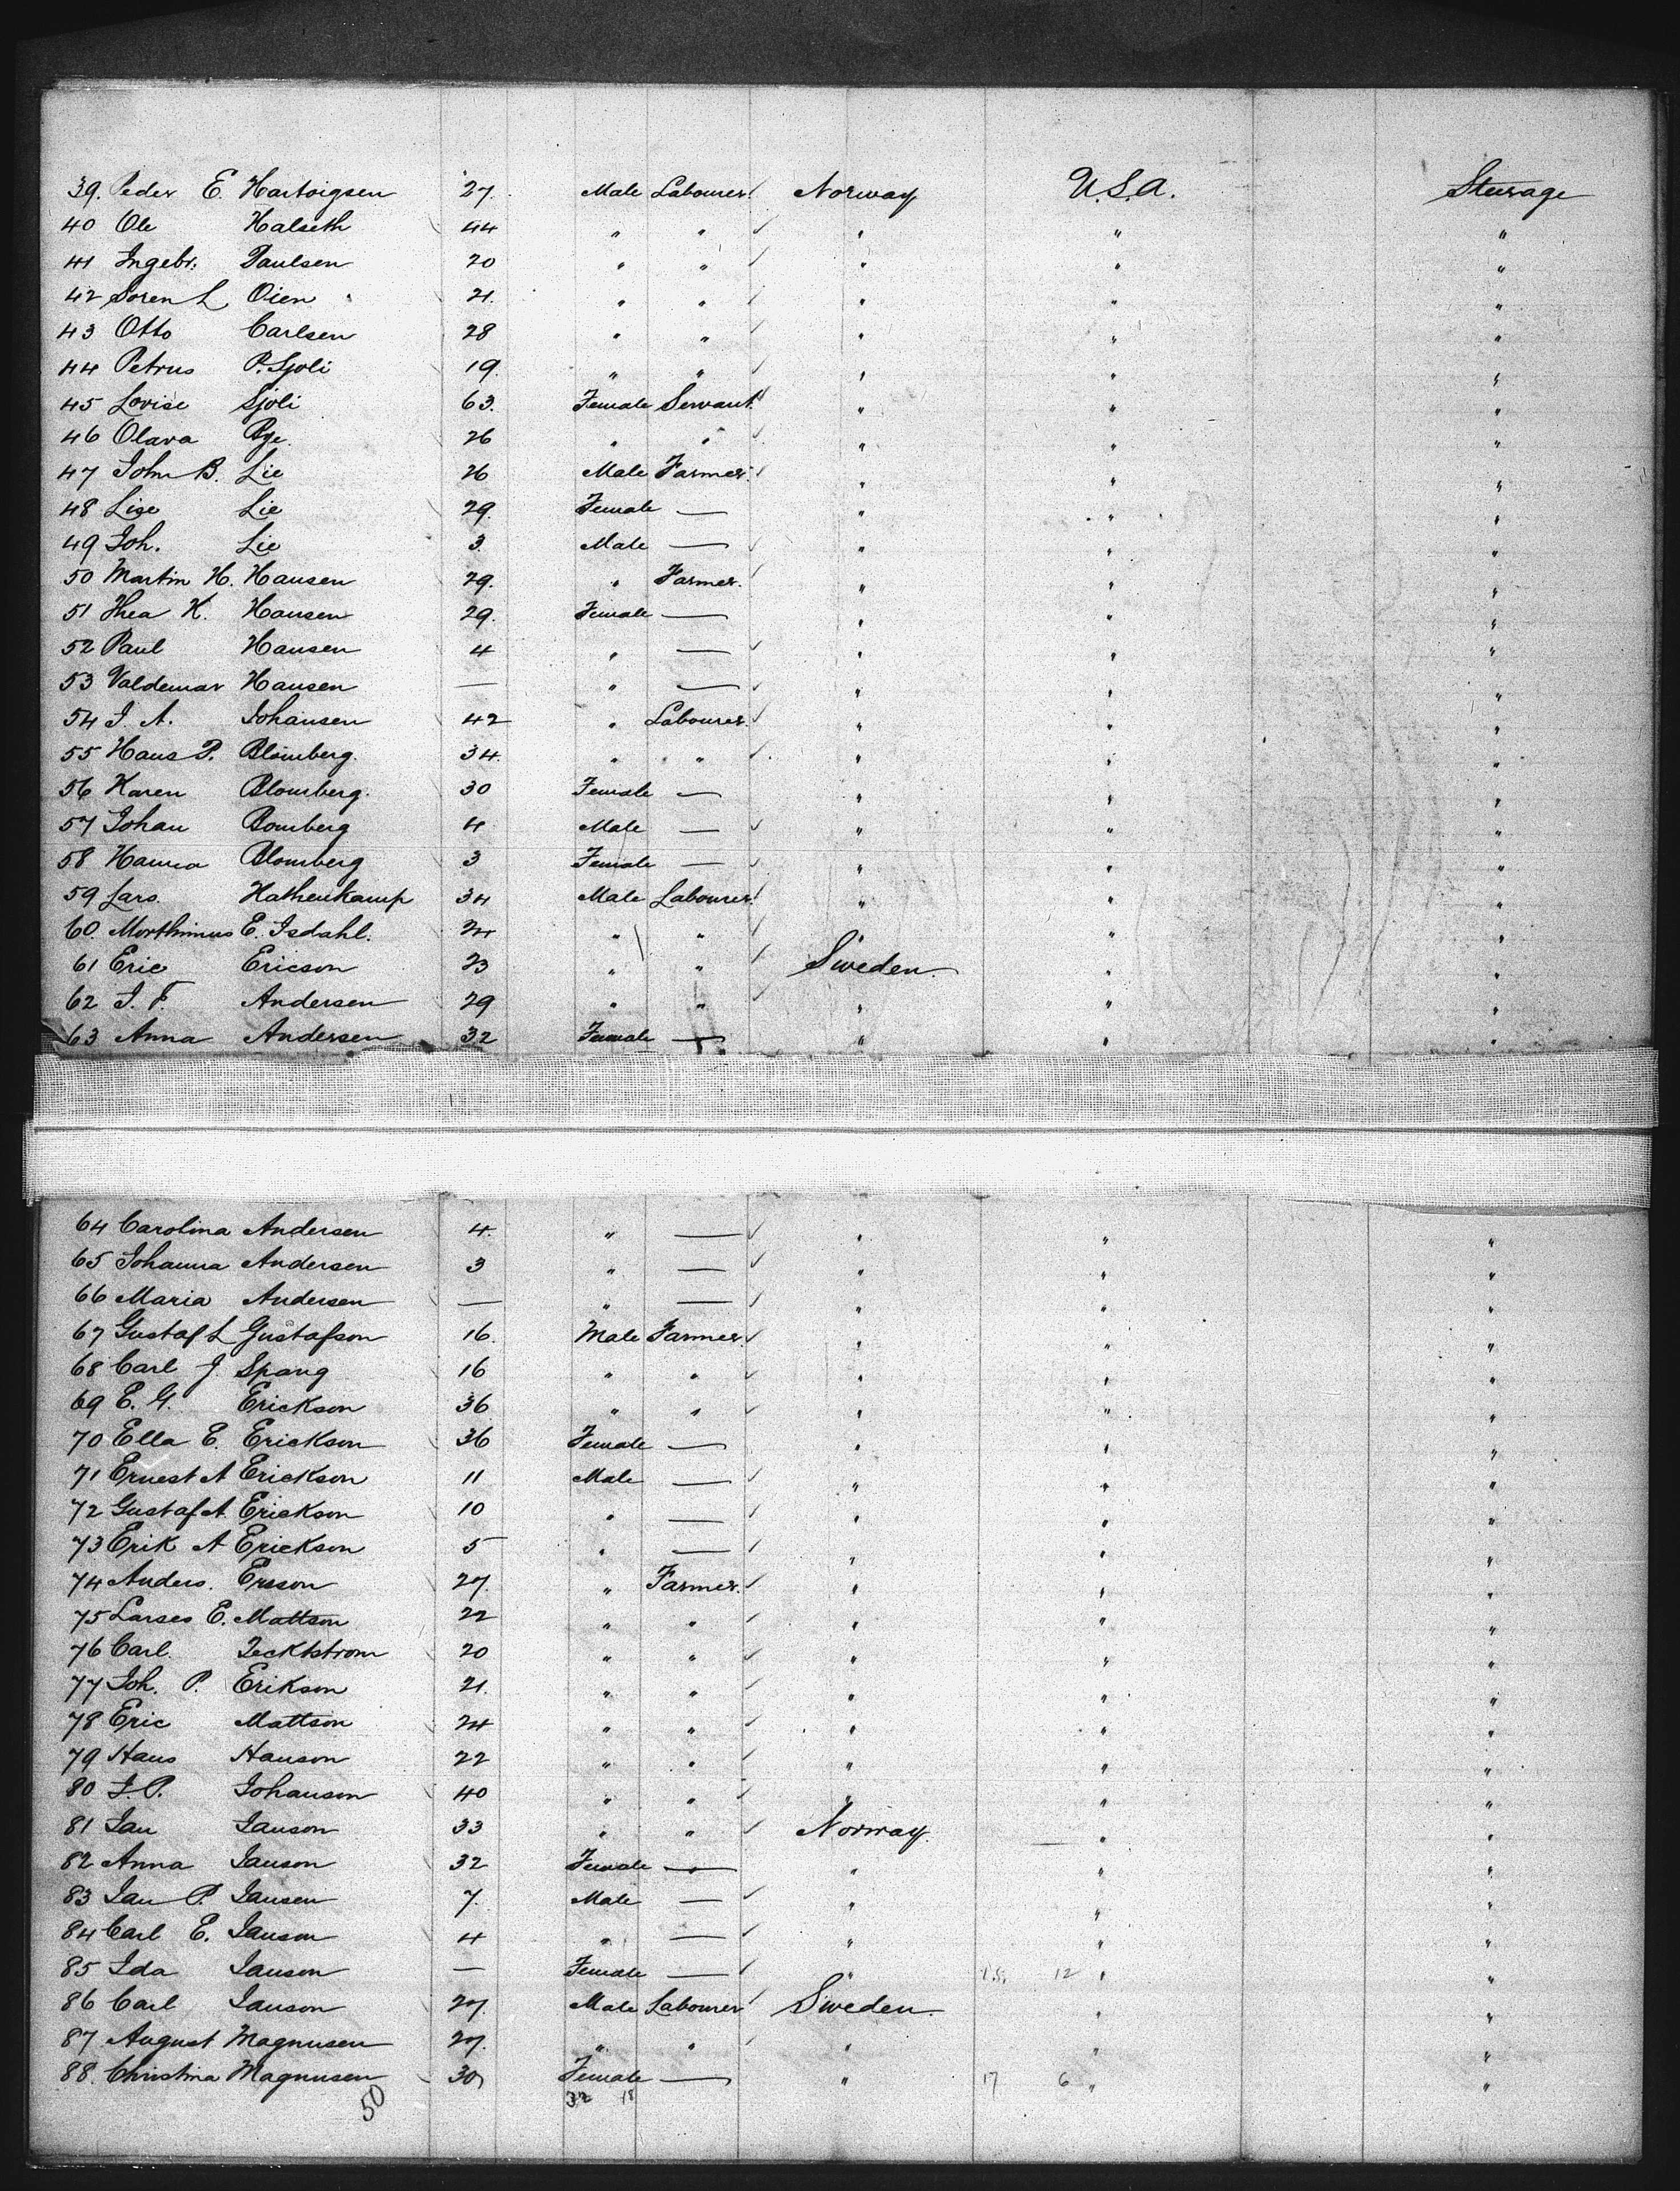 39. Peder E. Hartvigsen 27. Male Labourer. Norway U.S.A. Steerage
40 Ole Halseth 44 " " " " "
41 Ingebr. Paulsen 20 " " " " "
42 Soren L Oien 21. " " " " "
43 Otto Carlsen 28 " " " " "
44 Petrus P. Sjoli 19. " " " " "
45 Lovise Sjoli 63. Female Servant. " " "
46 Olava Rye. 26 " " " " "
47 John B. Lie 26 Male Farmer. " " "
48 Lise Lie 29. Female — " " "
49 Joh. Lie 3. Male — " " "
50 Martin H. Hansen 29. " Farmer. " " "
51 Thea K. Hansen 29. Female — " " "
52 Paul Hansen 4 " — " " "
53 Valdemar Hansen — " — " " "
54 J. A. Johansen 42 " Labourer. " " "
55 Hans P. Blomberg. 34. " " " " "
56 Karen Blomberg. 30 Female — " " "
57 Johan Bomberg 4 Male — " " "
58 Hanna Blomberg 3 Female — " " "
59 Lars. Hathenkamp 34 Male Labourer. " " "
60. Morthinus E. Isdahl. 24 " " " " "
61 Eric Ericson 23 " " Sweden. " "
62 J. F. Andersen 29 " " " " "
63 Anna Andersen 32 Female — " " "
64 Carolina Andersen 4. " — " " "
65 Johanna Andersen 3 " — " " "
66 Maria Andersen — " — " " "
67 Gustaf L Gustafson 16. Male Farmer. " " "
68 Carl J. Spang 16 " " " " "
69 E. G. Erickson 36 " " " " "
70 Ella E. Erickson 36 Female — " " "
71 Ernest A Erickson 11 Male — " " "
72 Gustaf A. Erickson 10 " — " " "
73 Erik A Erickson 5 " — " " "
74 Anders. Ersson 27. " Farmer. " " "
75 Larses E. Mattson 22 " " " " "
76 Carl. 20 " " " " "
77 Joh. P. Erikson 21. " " " " "
78 Eric Mattson 24 " " " " "
79 Hans Hanson 22 " " " " "
80 J. P. Johanson 40 " " " " "
81 Jan Janson 33 " " Norway. " "
82 Anna Janson 32 Female — " " "
83 Jan P. Jansen 7. Male — " " "
84 Carl E. Janson 4 " — " " "
85 Ida Janson — Female — " 12 " "
86 Carl Janson 27. Male Labourer Sweden. " "
87 August Magnusen 27. " " " " "
88. Christina Magnusen 30 Female — " 17 6 " "
50 32 18